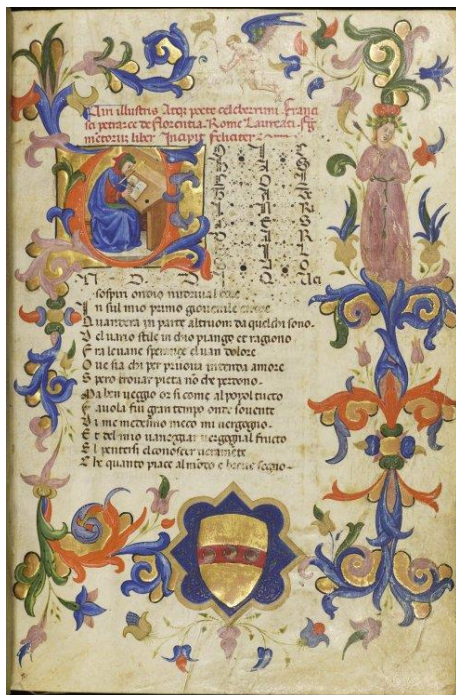 Viri illustris Atqz poete celeberrimi Franci
sci petrarce de florentia Rome Laureati frag
mentorum liber Incipit feliciter
sospiri ondio nutriua il core
In sul mio primo giouenile errore
Quandera in parte altruom da quelchi sono
Del uario stile in chio piango et ragiono
Fra leuane sperançe el uan dolore
Oue sia chi per pruoua intenda amore
Spero trouar pieta no che perdono
Ma ben ueggio or si come al popol tucto
Fauola fui gran tempo onde souente
Di me medesmo meco mi uergogno
Et del mio uaneggiar uergogna il fructo
El pentersi el conoscer
Che quanto piace al mondo e breue sogno